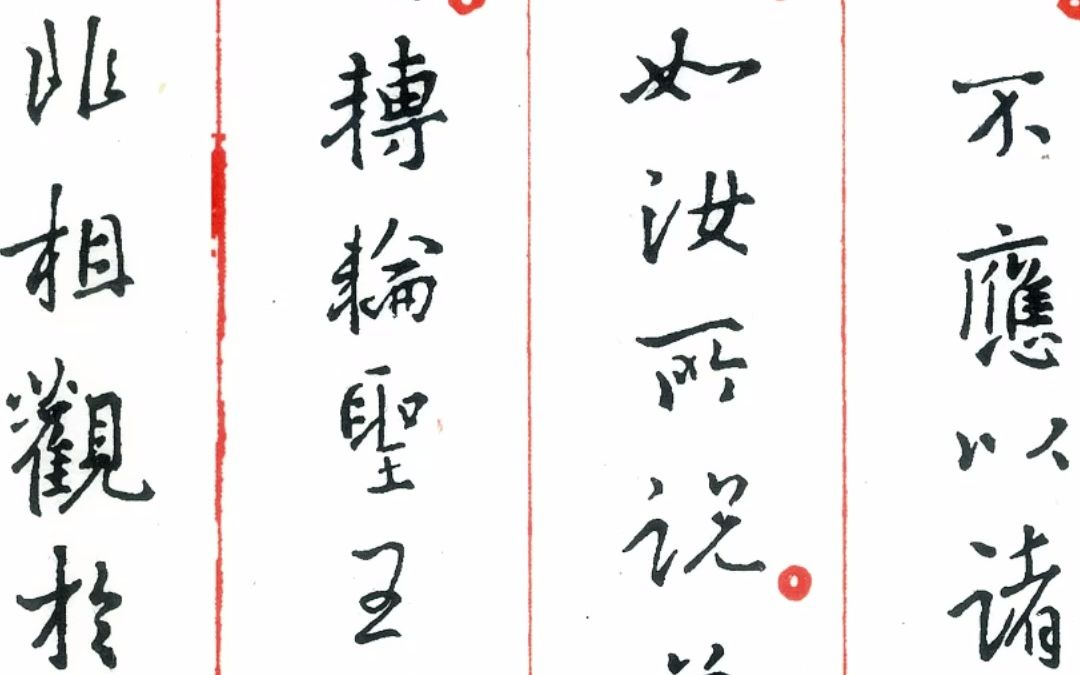 不應以諸
如汝所説
轉輪聖王
非相觀於